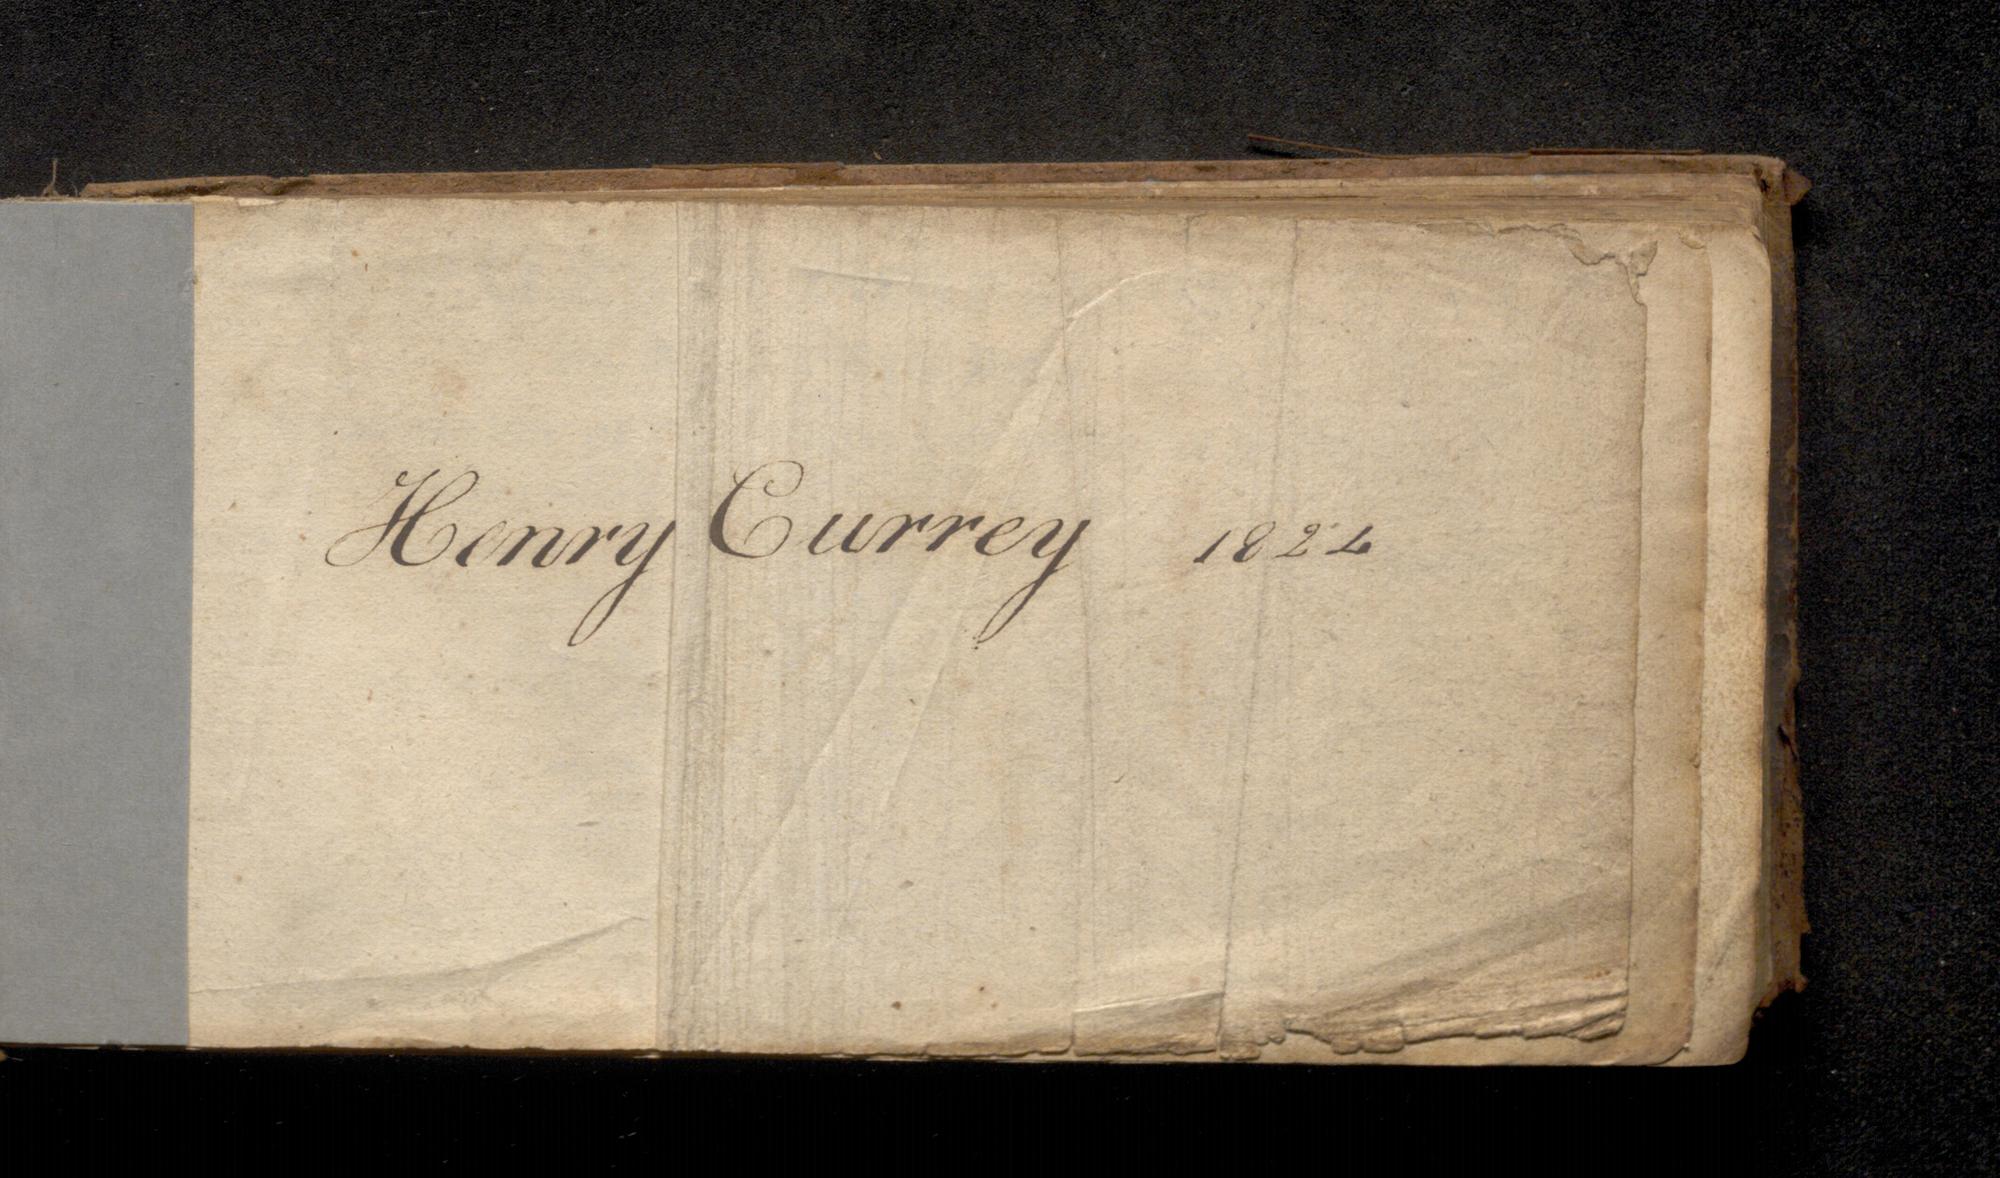 Henry Currey 1824